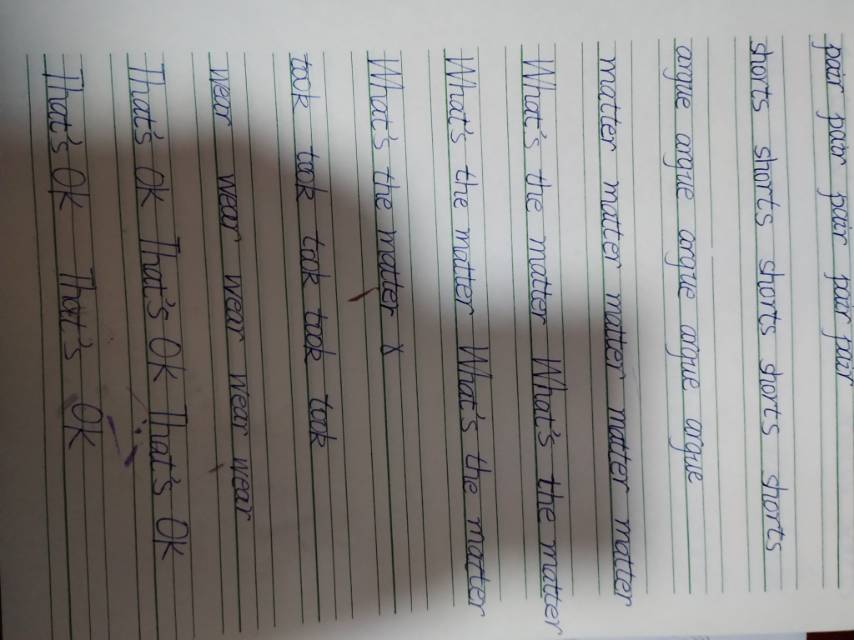 pair pair pair pair pair
shorts shorts shorts shorts shorts
argue argue argue argue argue
matter matter matter matter matter
What's the matter What's the matter
What's the matter What's the matter
What's the matter
took took took took took
wear wear wear wear wear
That's OK That's OK That's OK
That's OK That's OK